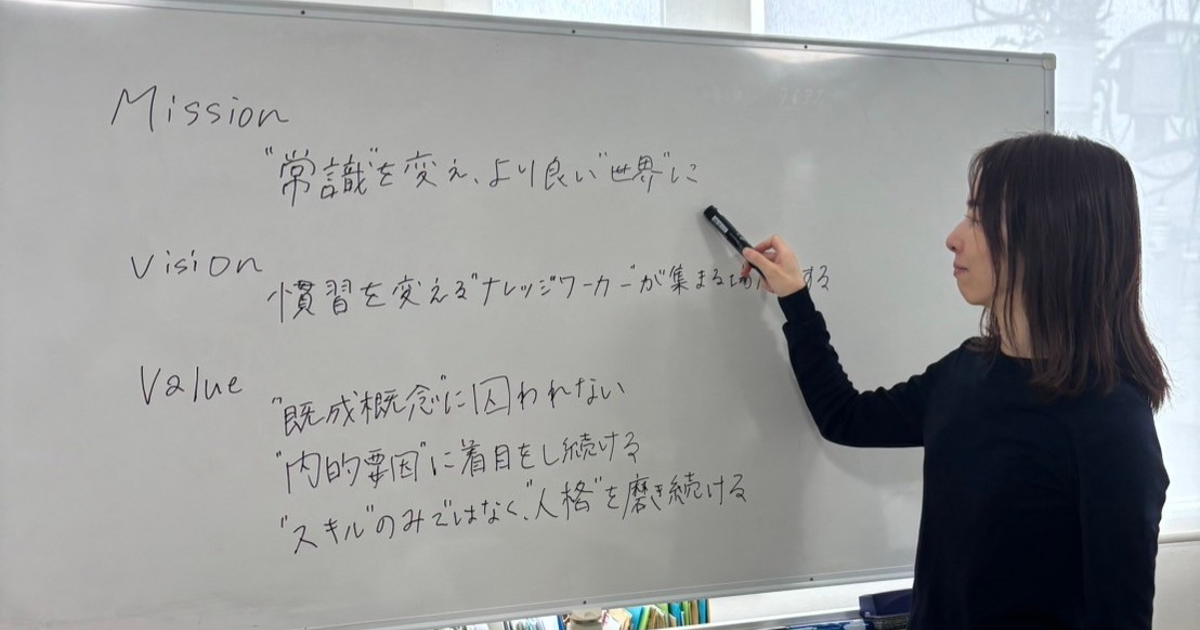 Mission
"常識"を変え、より良い"世界"に
Vision
慣習を変える"ナレッジワーカー"が集まる する
Value
"既成概念"に囚われない
"内的要因"に着目をし続ける
"スキル"のみではなく、"人格"を磨き続ける